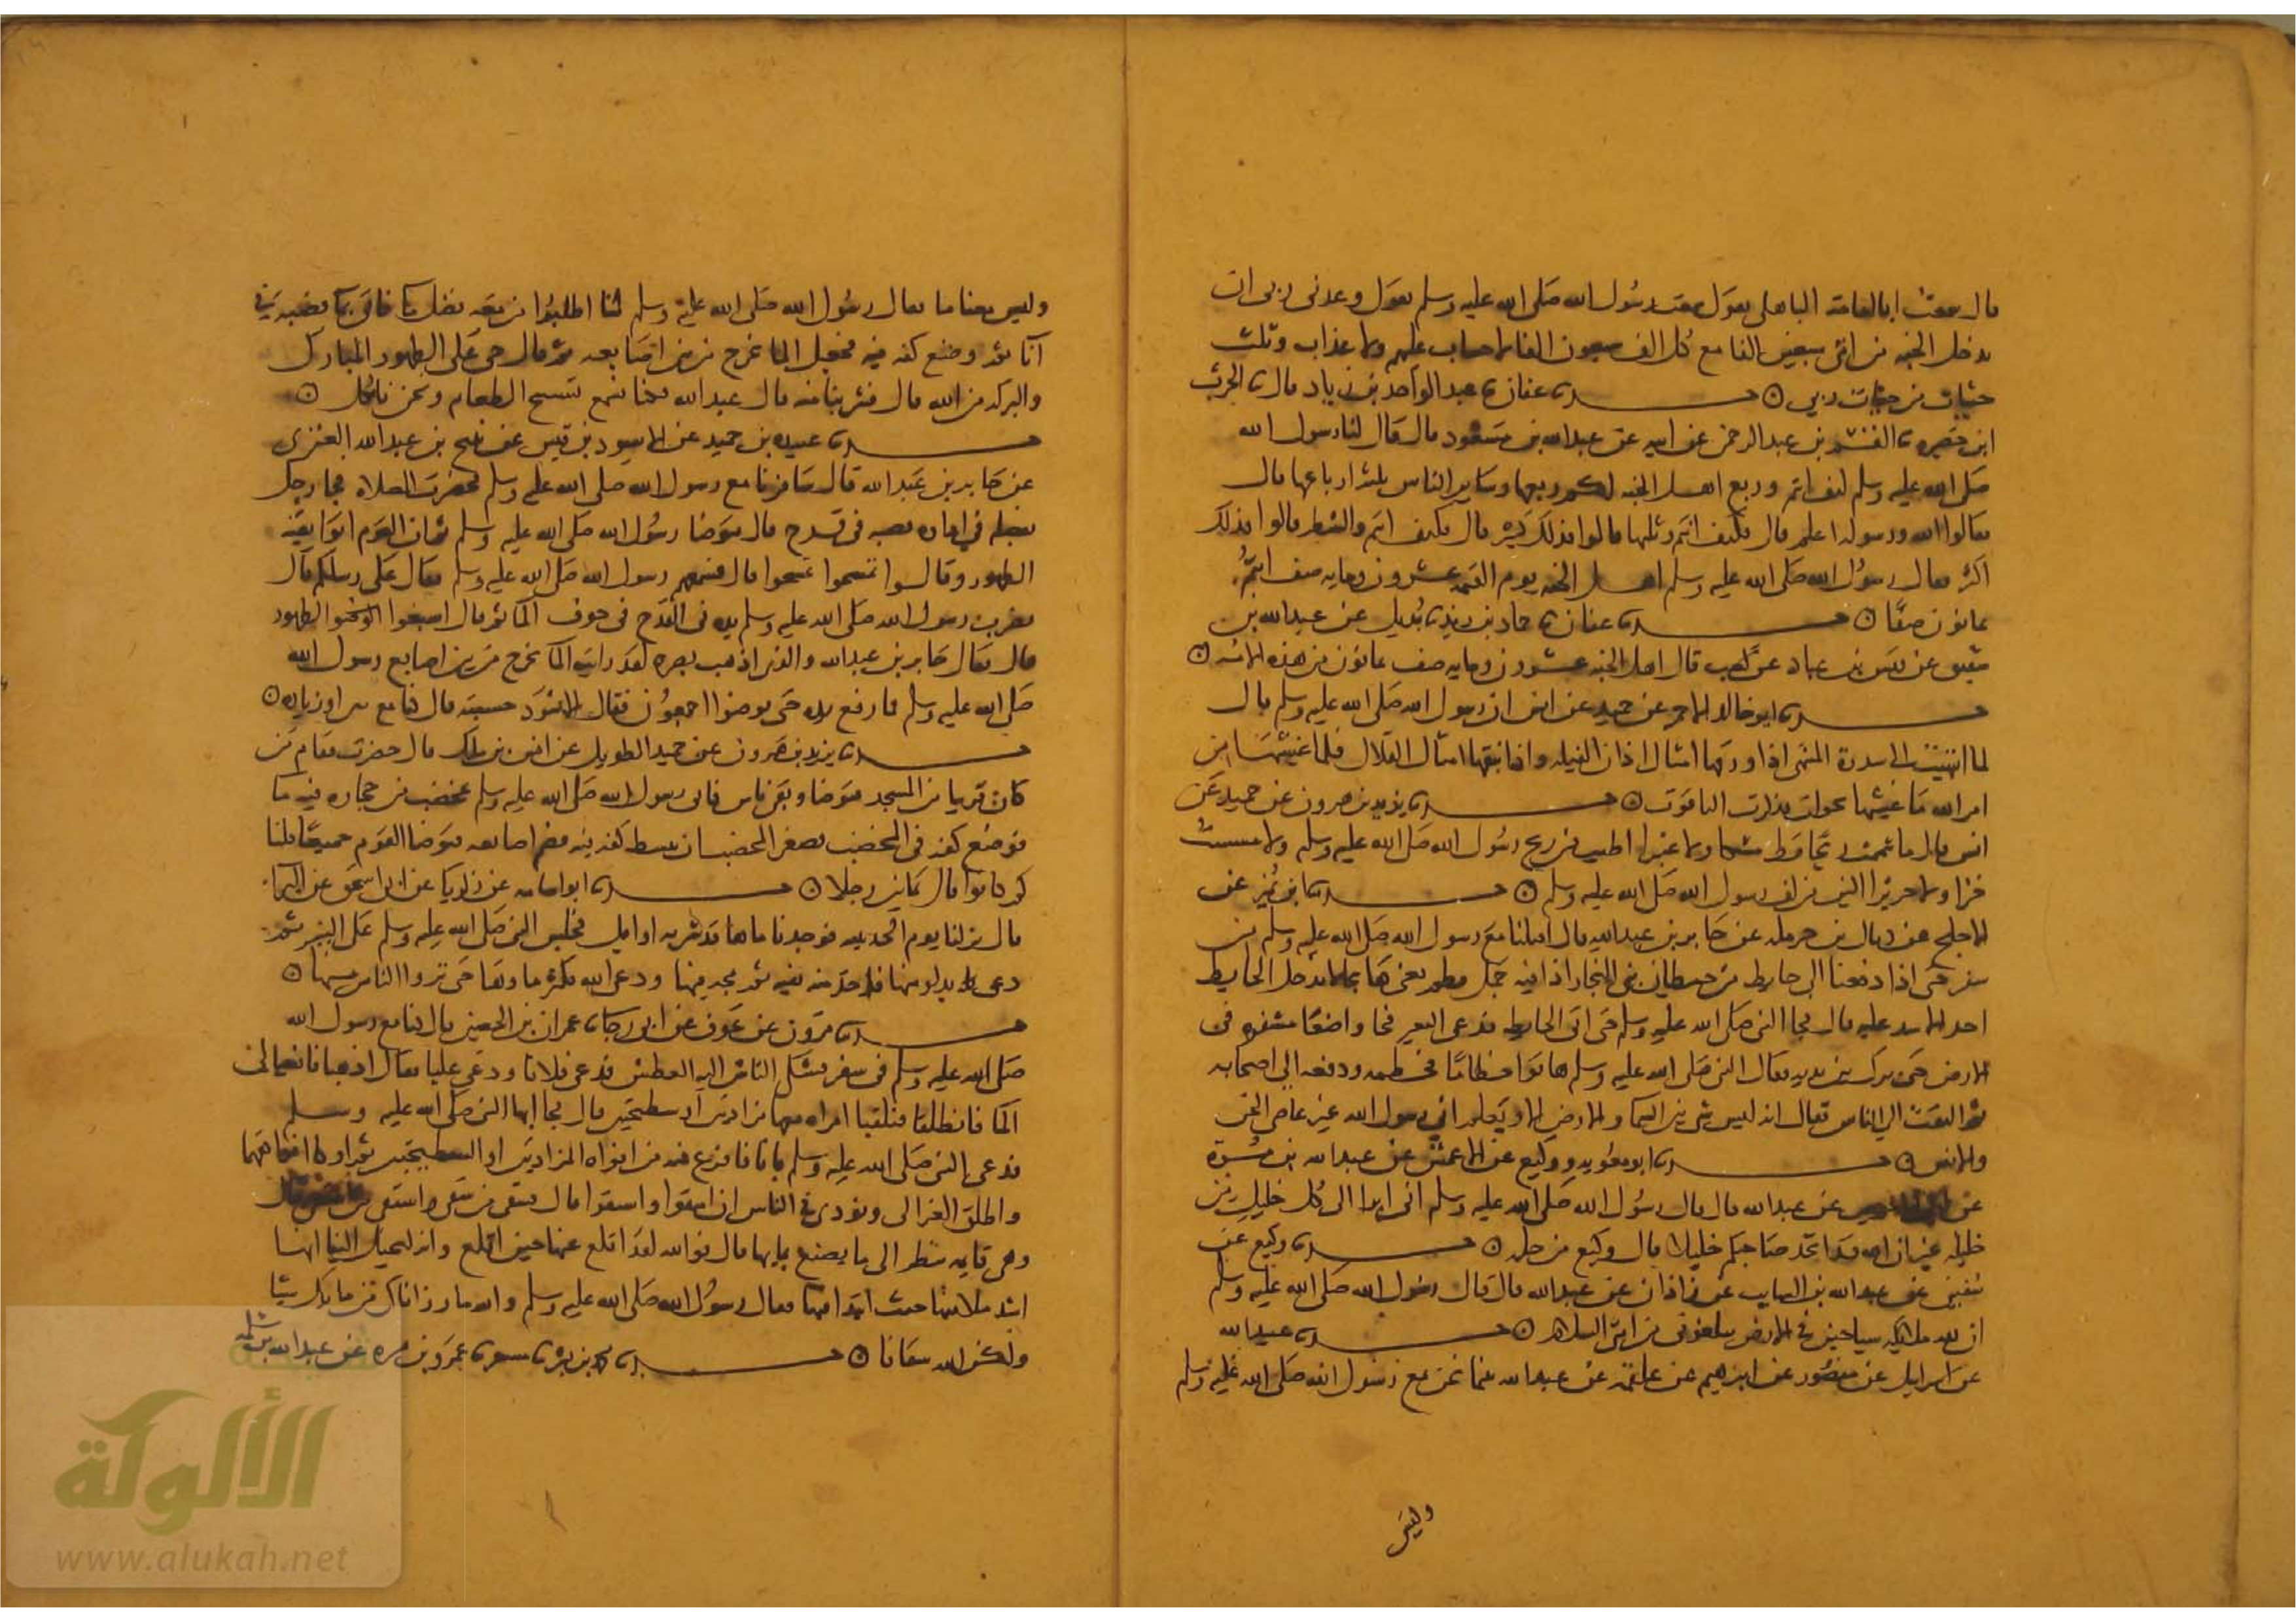 قال سمعت ابا امامة الباهلي يقول سمعت رسول الله صلى الله عليه وسلم يقول وعدني ربي ان
يدخل الجنة من امتي سبعين الفا مع كل الف سبعون الفا لا حساب عليهم ولا عذاب وثلث
حثيات من حثيات ربي ○ حدثنا عفان ثنا عبد الواحد بن زياد قال ثنا الحرث
ابن حصيرة ثنا القسم بن عبد الرحمن عن ابيه عن عبد الله بن مسعود قال قال لنا رسول الله
صلى الله عليه وسلم كيف انتم وربع اهل الجنة لكم ربعها وساير الناس ثلثة ارباعها قال
فقالوا الله ورسوله اعلم قال فكيف انتم وثلثها قالوا فذلك كثير قال فكيف انتم والشطر قالوا فذلك
اكثر فقال رسول الله صلى الله عليه وسلم اهل الجنة يوم القيمة عشرون وماية صف انتم
ثمانون صفا ○ حدثنا عفان ثنا حماد بن زيد ثنا بديل عن عبد الله بن
شقيق عن قيس بن عباد عن كعب قال اهل الجنة عشرون وماية صف ثمانون من هذه الامة ○
حدثنا ابو خالد الاحمر عن حميد عن انس ان رسول الله صلى الله عليه وسلم قال
لما انتهيت الى سدرة المنتهى اذا ورقها امثال اذان الفيلة واذا نبقها امثال القلال فلما غشيها من
امر الله ما غشيها تحولت فذكرت الياقوت ○ حدثنا يزيد بن هرون عن حميد عن
انس قال ما شممت ريحا قط مسكا ولا عنبرا اطيب من ريح رسول الله صلى الله عليه وسلم ولا مسست
خزا ولا حريرا الين من كف رسول الله صلى الله عليه وسلم ○ حدثنا ابن نمير عن
الاجلح عن ذيال بن حرملة عن جابر بن عبد الله قال اقبلنا مع رسول الله صلى الله عليه وسلم من
سفر حتى اذا دفعنا الى حايط من حيطان بني النجار اذا فيه جمل قطم يعني هايجا لا يدخل الحايط
احد الا شد عليه قال فجا النبي صلى الله عليه وسلم حتى اتى الحايط فدعى البعير فجا واضعا مشفره في
الارض حتى برك بين يديه فقال النبي صلى الله عليه وسلم هاتوا خطاما فخطمه ودفعه الى اصحابه
ثم التفت الى الناس فقال انه ليس شي بين السما والارض الا ويعلم اني رسول الله غير عاصي الجن
والانس ○ حدثنا ابو معوية ووكيع عن الاعمش عن عبد الله بن مرة
عن ابي الاحوص عن عبد الله قال قال رسول الله صلى الله عليه وسلم اني ابرا الى كل خليل من
خليله غير ان الله قد اتخذ صاحبكم خليلا قال وكيع من خله ○ حدثنا وكيع عن
سفين عن عبد الله بن السايب عن زاذان عن عبد الله قال قال رسول الله صلى الله عليه وسلم
ان لله ملايكة سياحين في الارض يبلغوني من امتي السلام ○ حدثنا عبيد الله
عن اسرايل عن منصور عن ابرهيم عن علقمة عن عبد الله بينما نحن مع رسول الله صلى الله عليه وسلم
وليس
وليس معنا ما فقال رسول الله صلى الله عليه وسلم لنا اطلبوا من معه فضل ما فاتي بما فصبه في
انا ثم وضع كفه فيه فجعل الما يخرج من بين اصابعه ثم قال حي على الطهور المبارك
والبركة من الله قال فشربنا منه قال عبد الله وكنا نسمع تسبيح الطعام ونحن ناكل ○
حدثنا عبيدة بن حميد عن الاسود بن قيس عن نبيح بن عبد الله العنزي
عن جابر بن عبد الله قال سافرنا مع رسول الله صلى الله عليه وسلم فحضرت الصلاة فجا رجل
بفضله في اداوة فصبه في قدح قال فتوضا رسول الله صلى الله عليه وسلم ثم ان القوم اتوا بقية
الطهور وقالوا تمسحوا تمسحوا قال فسمعهم رسول الله صلى الله عليه وسلم فقال على رسلكم قال
فضرب رسول الله صلى الله عليه وسلم يده في القدح في جوف الما ثم قال اسبغوا الوضو الطهور
قال فقال جابر بن عبد الله والذي اذهب بصره لقد رايت الما يخرج من بين اصابع رسول الله
صلى الله عليه وسلم فما رفع يده حتى توضوا اجمعون فقال الاسود حسبته قال كنا مع مايتين او زيادة ○
حدثنا يزيد بن هرون عن حميد الطويل عن انس بن ملك قال حضرت فقام من
كان قريبا من المسجد فتوضا وبقي ناس فاتي رسول الله صلى الله عليه وسلم بمخضب من حجارة فيه ما
فوضع كفه في المخضب فصغر المخضب ان يبسط كفه فيه فضم اصابعه فتوضا القوم جميعا قلنا
كم كانوا قال ثمانين رجلا ○ حدثنا ابو اسامه عن زكريا عن ابي اسحق عن البرا
قال نزلنا يوم الحديبية فوجدنا ماها قد شربه اوايل فجلس النبي صلى الله عليه وسلم على البير ثم
دعى بدلو منها فاخذ منه بفيه ثم مجه فيها ودعى الله فكثر ماوها حتى تروا الناس منها ○
حدثنا مرون عن عوف عن ابي رجا ثنا عمران بن الحصين قال كنا مع رسول الله
صلى الله عليه وسلم في سفر فشكى الناس اليه العطش فدعى فلانا ودعى عليا فقال اذهبا فابغيا لي
الما فانطلقا فتلقيا امراة معها مزادتين او سطيحتين قال فجا بها النبي صلى الله عليه وسلم
فدعى النبي صلى الله عليه وسلم بانا فافرغ فيه من افواه المزادتين او السطيحتين ثم اوكا افواههما
واطلق العزالي ونودي في الناس ان اسقوا واستقوا قال فسقى من سقى واستقى من استقى قال
وهي قايمة تنظر الى ما يصنع بمايها قال فوالله لقد اقلع عنها حين اقلع وانه ليخيل الينا انها
اشد ملاة منها حيث ابتدا فيها فقال رسول الله صلى الله عليه وسلم والله ما رزاناك من مايك شيا
ولكن الله سقانا ○ حدثنا محمد بن بشر ثنا مسعر ثنا عمرو بن مرة عن عبد الله بن سلمة
الألوكة
www.alukah.net